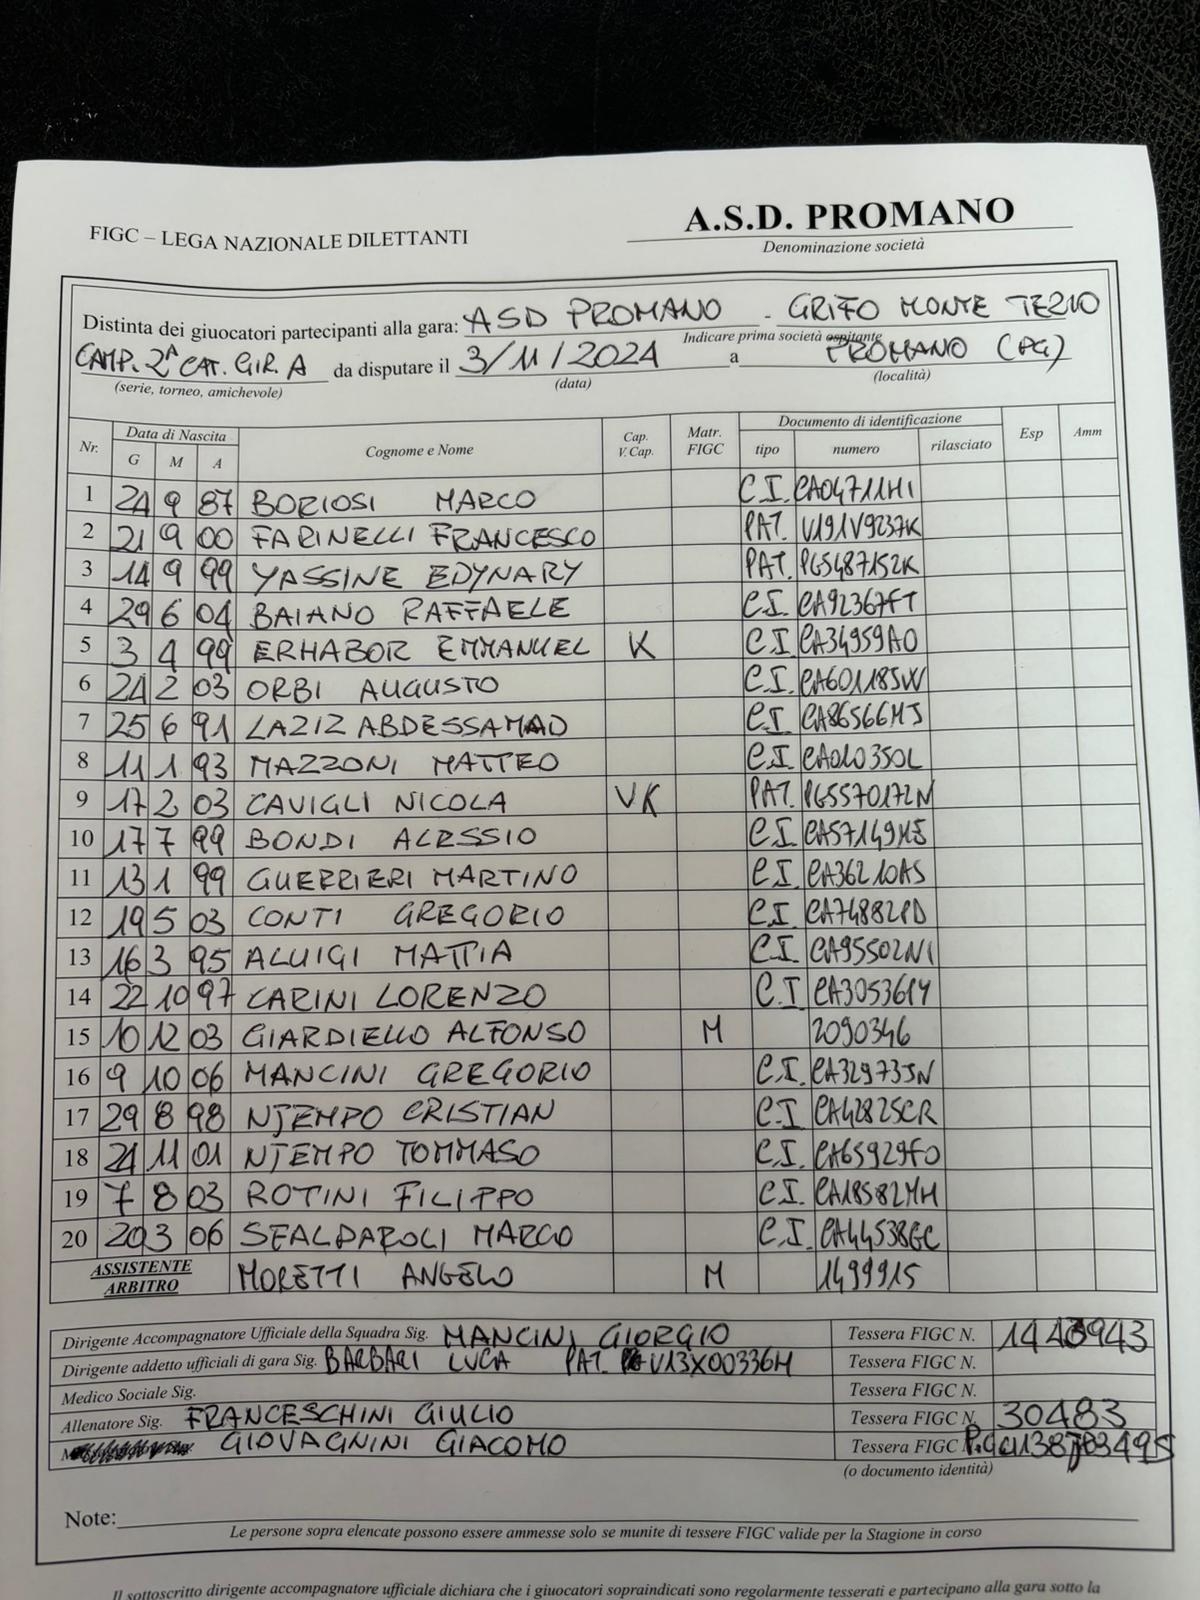 A.S.D. PROMANO
FIGC – LEGA NAZIONALE DILETTANTI
Denominazione società
Distinta dei giuocatori partecipanti alla gara: ASD PROMANO - GRIFO MONTE TEZIO
Indicare prima società ospitante
CAMP. 2ª CAT. GIR. A da disputare il 3/11/2024 a PROMANO (PG)
(serie, torneo, amichevole) (data) (località)
Nr. Data di Nascita Cognome e Nome Cap. V. Cap. Matr. FIGC Documento di identificazione Esp Amm
G M A tipo numero rilasciato
1 24 9 87 BORIOSI MARCO C.I. CA04711HI
2 21 9 00 FARINELLI FRANCESCO PAT. U191V9237K
3 14 9 99 YASSINE EDYNARY PAT. PG5487152K
4 29 6 04 BAIANO RAFFAELE C.I. CA92367FT
5 3 4 99 ERHABOR EMMANUEL K C.I. CA34959AO
6 24 2 03 ORBI AUGUSTO C.I. CA60118JW
7 25 6 91 LAZIZ ABDESSAMAD C.I. CA86566MJ
8 11 1 93 MAZZONI MATTEO C.I. CA01035OL
9 17 2 03 CAVIGLI NICOLA VK PAT. PG5570172N
10 17 7 99 BONDI ALESSIO C.I. CA57149MJ
11 13 1 99 GUERRIERI MARTINO C.I. CA36210AS
12 19 5 03 CONTI GREGORIO C.I. CA74882PD
13 16 3 95 ALUIGI MATTIA C.I. CA95502NI
14 22 10 97 CARINI LORENZO C.I. CA30536PY
15 10 12 03 GIARDIELLO ALFONSO M 2090346
16 9 10 06 MANCINI GREGORIO C.I. CA32973JN
17 29 8 98 NJEMPO CRISTIAN C.I. CA42825CR
18 24 11 01 NJEMPO TOMMASO C.I. CA65929FO
19 7 8 03 ROTINI FILIPPO C.I. CA18582MH
20 20 3 06 SEALDAROLI MARCO C.I. CA44538GC
ASSISTENTE ARBITRO MORETTI ANGELO M 1499915
Dirigente Accompagnatore Ufficiale della Squadra Sig. MANCINI GIORGIO Tessera FIGC N.
Dirigente addetto ufficiali di gara Sig. BARBARI LUCA PAT. U13X00336H Tessera FIGC N.
Medico Sociale Sig. Tessera FIGC N.
Allenatore Sig. FRANCESCHINI GIULIO Tessera FIGC N. 30483
GIOVAGNINI GIACOMO Tessera FIGC
(o documento identità)
Note:
Le persone sopra elencate possono essere ammesse solo se munite di tessere FIGC valide per la Stagione in corso
Il sottoscritto dirigente accompagnatore ufficiale dichiara che i giuocatori sopraindicati sono regolarmente tesserati e partecipano alla gara sotto la